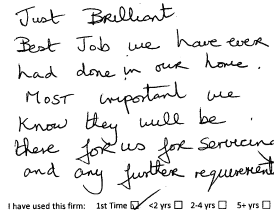 Just Brilliant
Best Job we have ever
had done in our home.
Most important we
know they will be
there for us for servicing
and any further requirement
I have used this firm: 1st Time ☑ <2 yrs ☐ 2-4 yrs ☐ 5+ yrs ☐